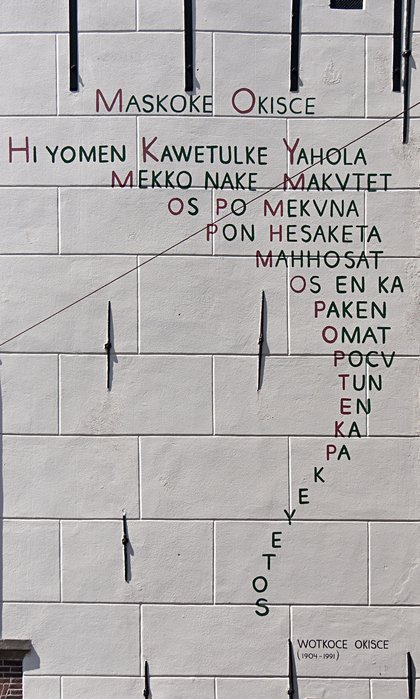 MASKOKE OKISCE
HI YOMEN KAWETULKE YAHOLA
MEKKO NAKE MAKVTET
OS PO MEKVNA
PON HESAKETA
MAHHOSAT
OS EN KA
PAKEN
OMAT
POCV
TUN
EN
KA
PA
K
E
Y
E
T
O
S
WOTKOCE OKISCE
(1904-1991)